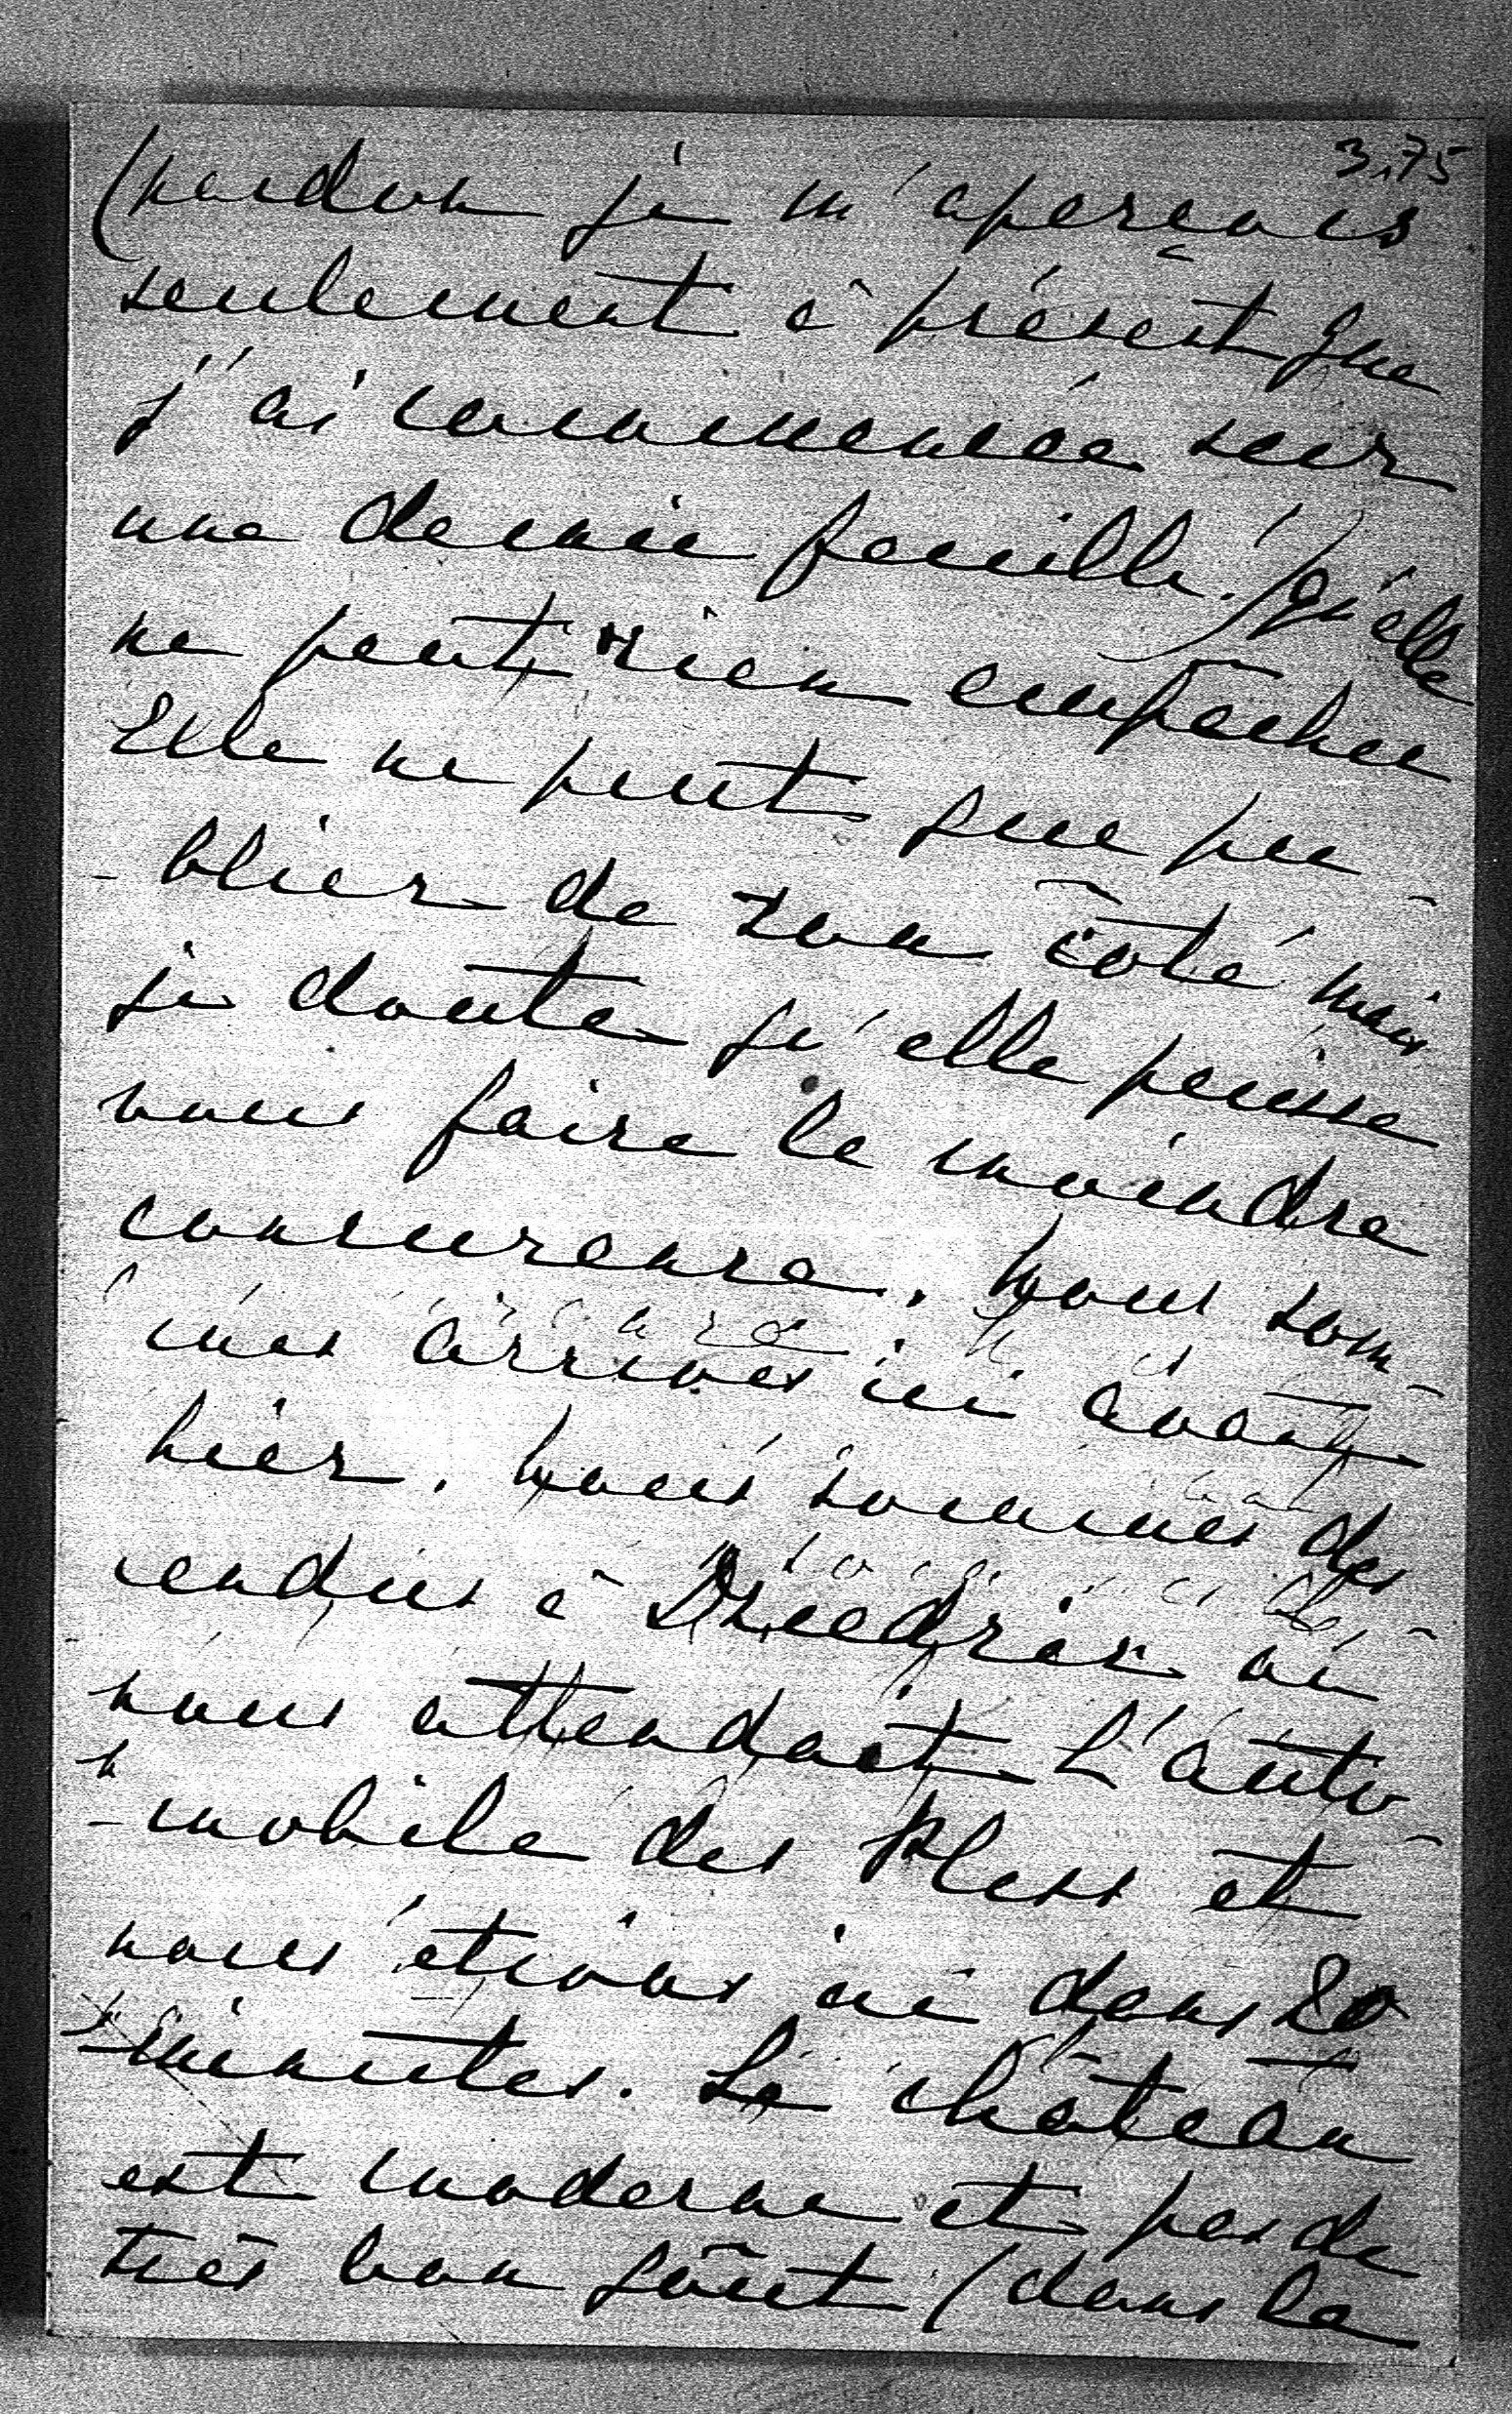 3.75
(pardon je m'aperçois
seulement à présent que
j'ai commencée sur
une demie feuille.) qu'elle
ne peut rien empêcher
Elle ne peut que pu-
-blier de son côté mais
je doute qu'elle puisse
nous faire la moindre
concurence. Nous som-
mes arrivés ici avant
hier. Nous sommes des-
cendus à où
nous attendait L'auto-
-mobile des Pless et
nous étions ici dans 20
minutes. Le château
est moderne et pas de
très bon goût (dans le